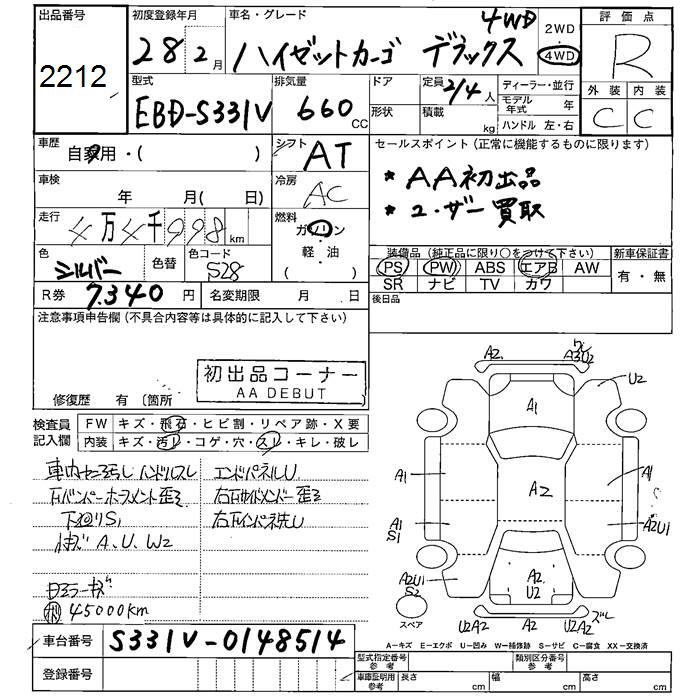 出品番号
2212
初度登録年月
28 2月
車名・グレード
4WD
ハイゼットカーゴ デラックス
2WD
4WD
評価点
R
外装 内装
C C
型式
EBD-S331V
排気量
660 CC
ドア
形状
定員
2/4 人
積載
kg
ディーラー・並行
モデル年式 年
ハンドル 左・右
車歴
自家用・( )
シフト
AT
セールスポイント(正常に機能するものに限ります)
* AA初出品
* ユーザー買取
車検
年 月( 日)
冷房
AC
走行
4万4千998km
燃料
ガソリン
軽・油
( )
色
シルバー
色替
色コード
S28
装備品(純正品に限り○をつけて下さい)
新車保証書
PS PW ABS エアB AW
有・無
SR ナビ TV カワ
R券 7,340円
名変期限 月 日
後日品
注意事項申告欄(不具合内容等は具体的に記入して下さい)
初出品コーナー
AA DEBUT
修復歴 有(箇所
検査員記入欄
FW キズ・飛石・ヒビ割・リペア跡・X要
内装 キズ・汚レ・コゲ・穴・スレ・キレ・破レ
エンドパネルU
下廻りS1
A、U、W2
45000km
車台番号 S331V-0148514
登録番号
A2
A3U2
U2
A1
A1
A2
A1
A1
S1
A2U1
A2U1
S2
A2
U2
スペア
U2A2 A2 U2A2 ズレ
A=キズ E=エクボ U=凹み W=補修跡 S=サビ C=腐食 XX=交換済
型式指定番号 参考
類別区分番号 参考
車庫証明用 参考
長さ cm
幅 cm
高さ cm